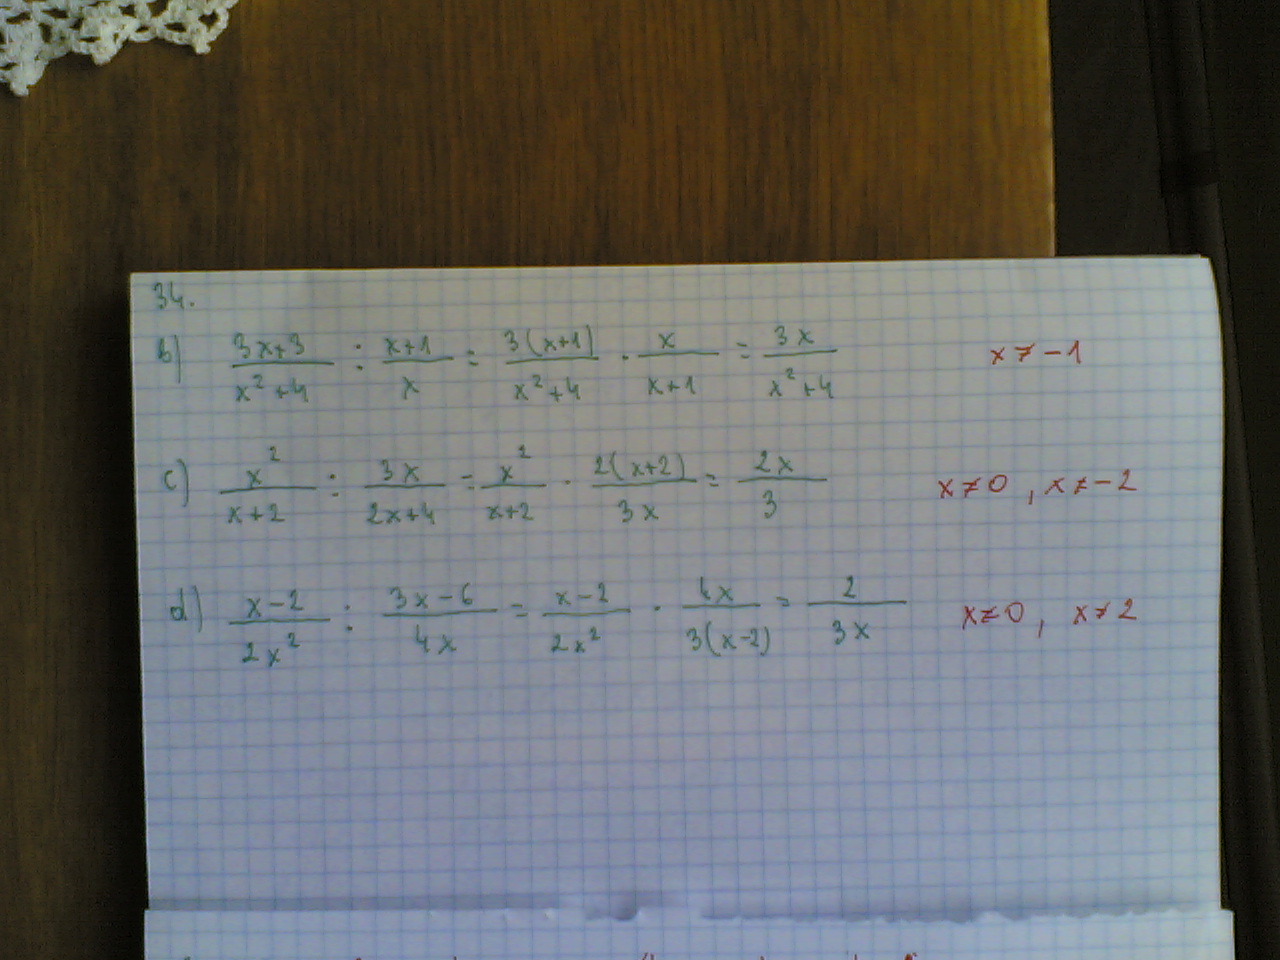 34.
b) (3x+3)/(x²+4) : (x+1)/x = 3(x+1)/(x²+4) · x/(x+1) = 3x/(x²+4) x≠-1
c) x²/(x+2) : 3x/(2x+4) = x²/(x+2) · 2(x+2)/3x = 2x/3 x≠0, x≠-2
d) (x-2)/2x² : (3x-6)/4x = (x-2)/2x² · 4x/3(x-2) = 2/3x x≠0, x≠2